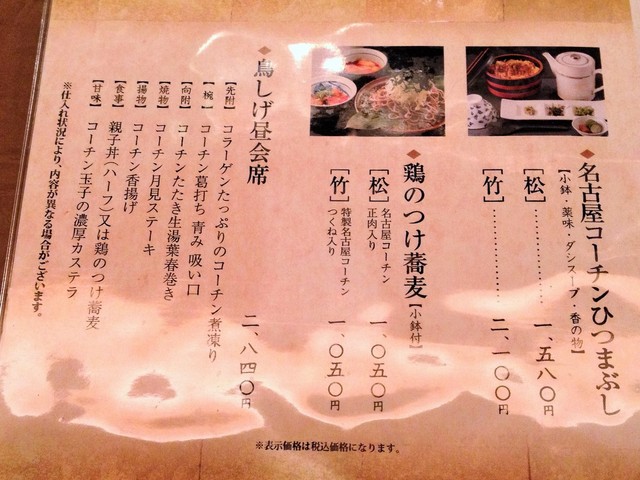 ◆名古屋コーチンひつまぶし
【小鉢・薬味・ダシスープ・香の物】
【松】………… 一、五八〇円
【竹】………… 二、一〇〇円
◆鶏のつけ蕎麦【小鉢付】
【松】名古屋コーチン正肉入り 一、〇五〇円
【竹】特製名古屋コーチンつくね入り 一、〇五〇円
◆鳥しげ昼会席 二、八四〇円
【先附】コラーゲンたっぷりのコーチン煮凍り
【椀】コーチン葛打ち 青み 吸い口
【向附】コーチンたたき生湯葉春巻き
【焼物】コーチン月見ステーキ
【揚物】コーチン香揚げ
【食事】親子丼(ハーフ)又は鶏のつけ蕎麦
【甘味】コーチン玉子の濃厚カステラ
※仕入れ状況により、内容が異なる場合がございます。
※表示価格は税込価格になります。